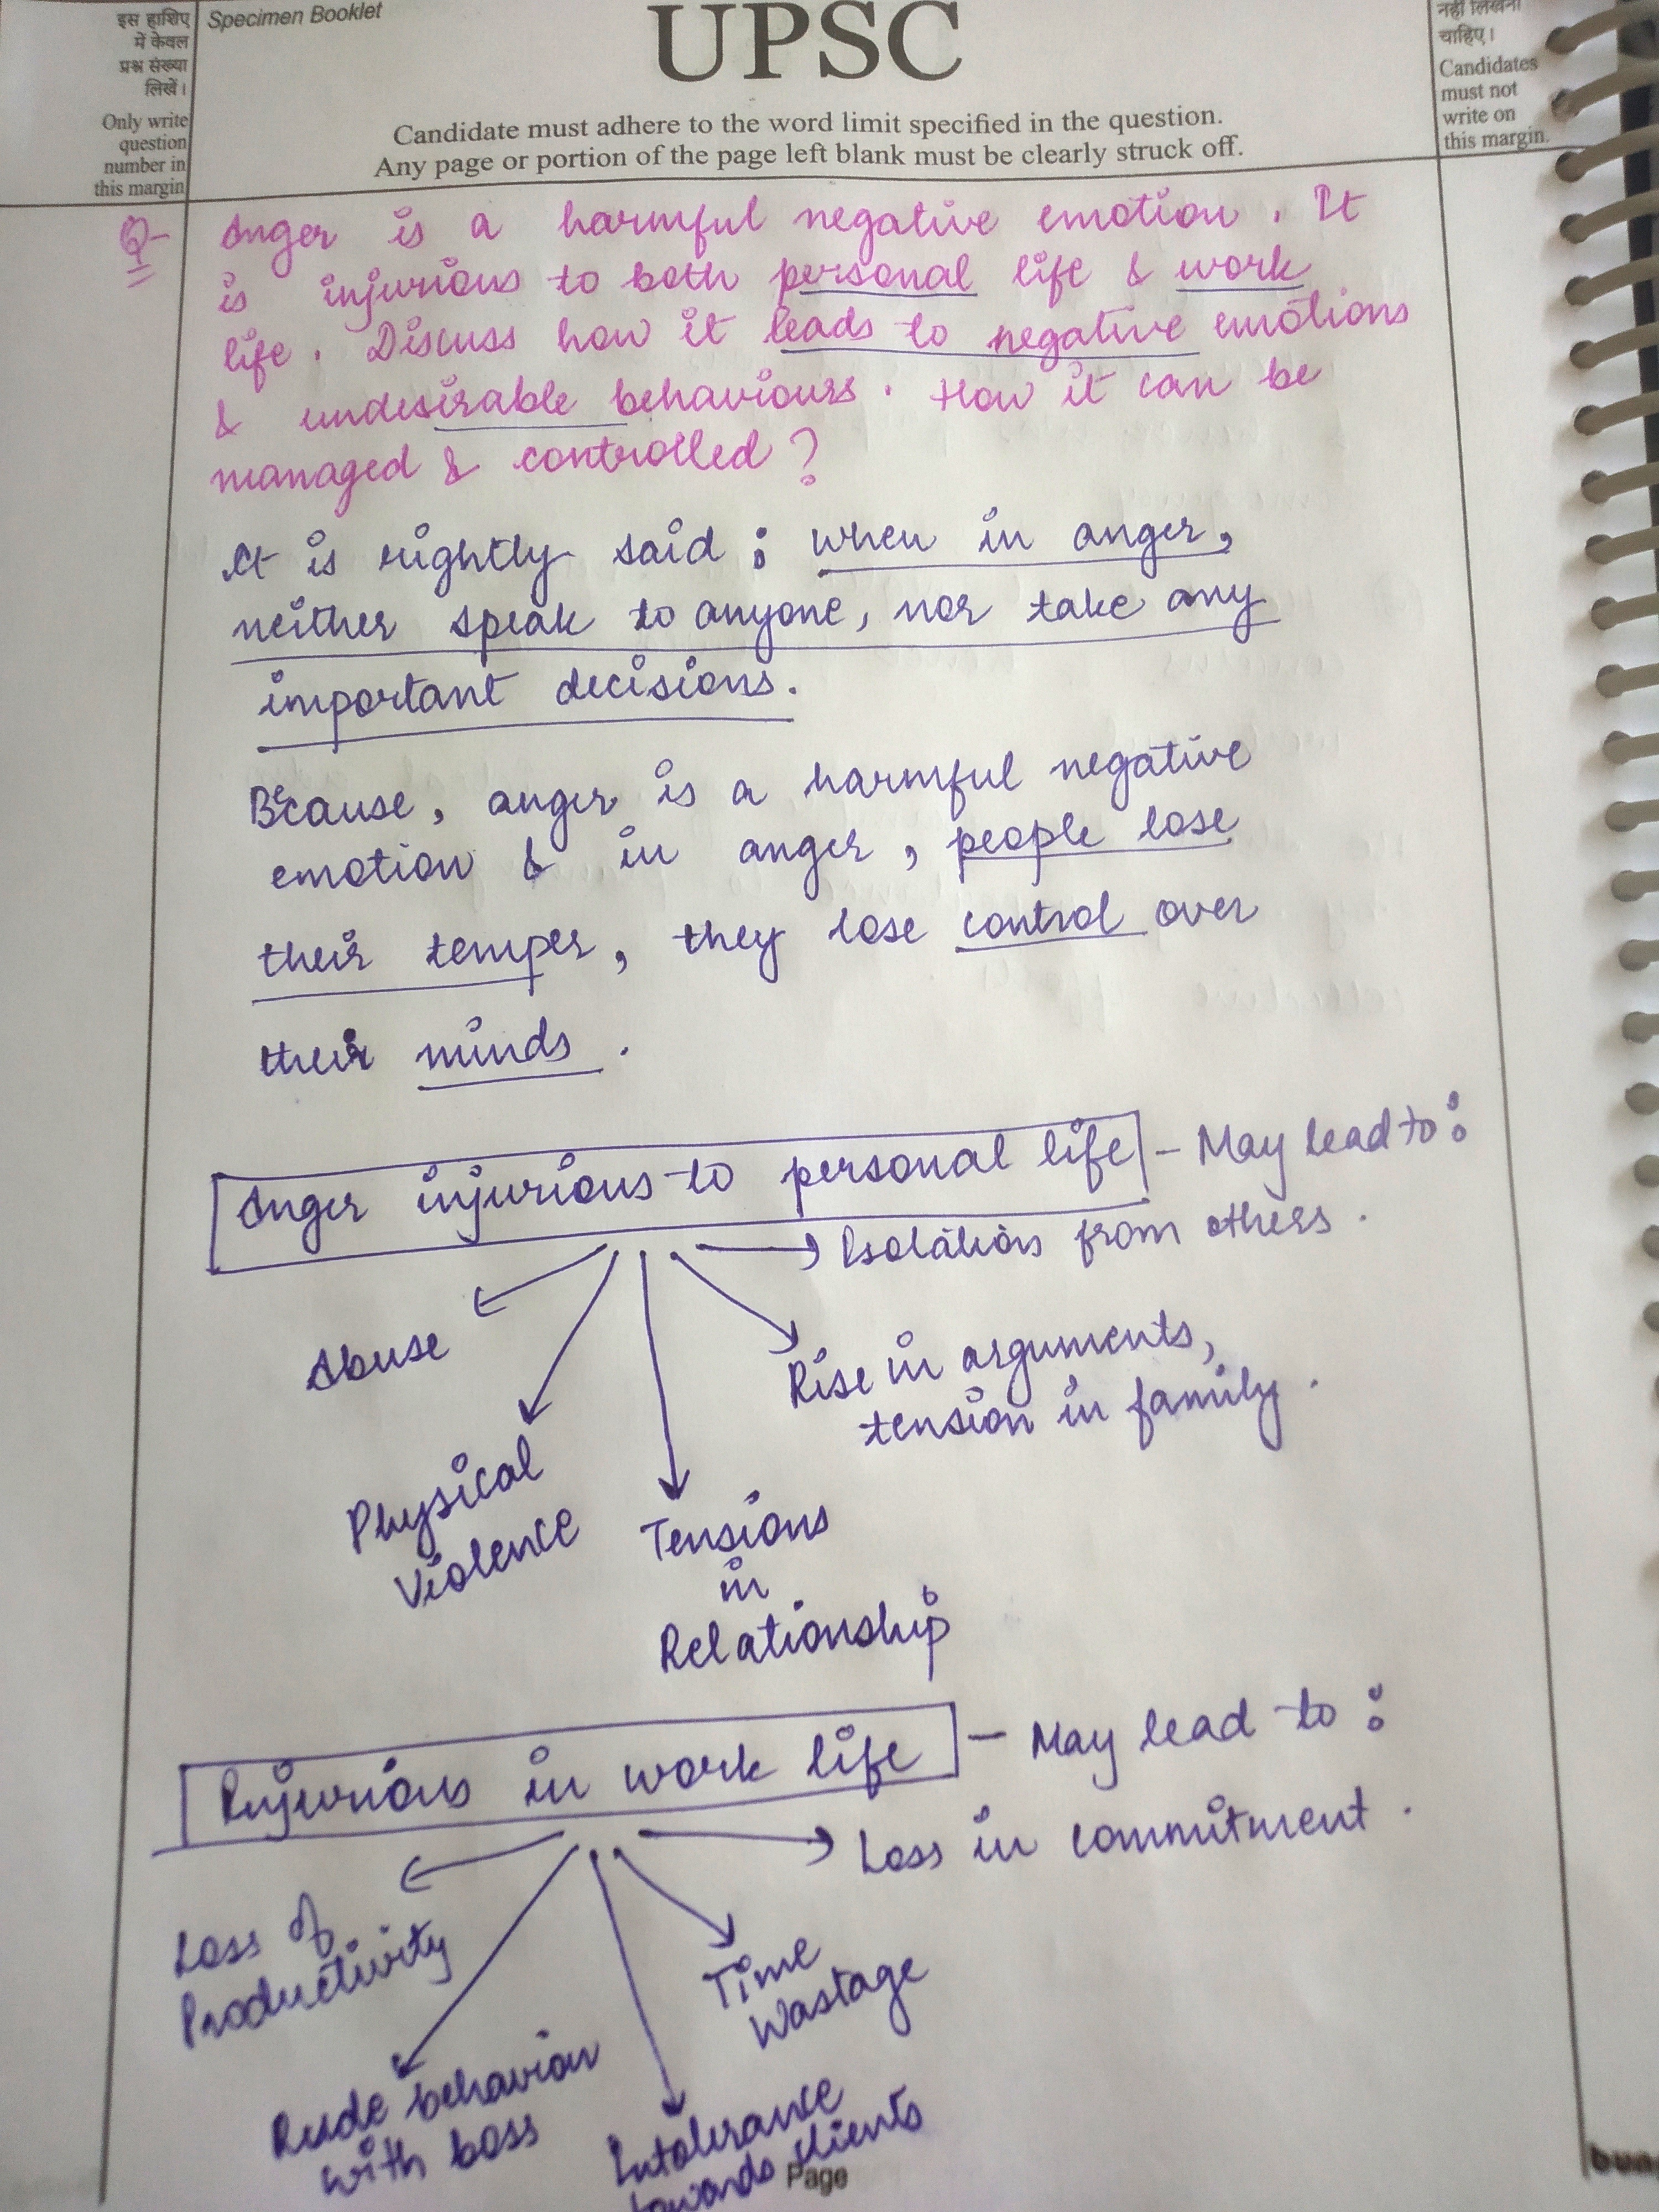 इस हाशिए
में केवल
प्रश्न संख्या
लिखें।
Only write
question
number in
this margin
Specimen Booklet
UPSC
Candidate must adhere to the word limit specified in the question.
Any page or portion of the page left blank must be clearly struck off.
नहीं लिखना
चाहिए।
Candidates
must not
write on
this margin.
Q- Anger is a harmful negative emotion. It
is injurious to both personal life & work
life. Discuss how it leads to negative emotions
& undesirable behaviours. How it can be
managed & controlled?
It is rightly said : when in anger,
neither speak to anyone, nor take any
important decisions.
Because, anger is a harmful negative
emotion & in anger, people lose
their temper, they lose control over
their minds.
Anger injurious to personal life - May lead to:
Isolation from others.
Abuse
Physical
Violence
Tensions
in
Relationship
Rise in arguments,
tension in family.
Injurious in work life - May lead to :
Loss in commitment.
Loss of
Productivity
Rude behavior
with boss
Intolerance
towards clients
Time
Wastage
Page